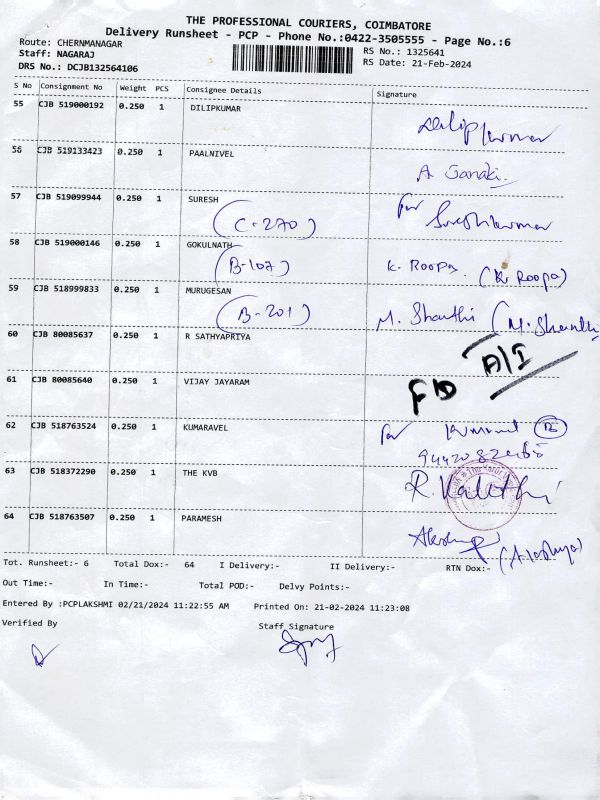 THE PROFESSIONAL COURIERS, COIMBATORE
Delivery Runsheet - PCP - Phone No.:0422-3505555 - Page No.:6
Route: CHERNMANAGAR
RS No.: 1325641
Staff: NAGARAJ
RS Date: 21-Feb-2024
DRS No.: DCJB132564106
S No Consignment No Weight PCS Consignee Details Signature
55 CJB 519000192 0.250 1 DILIPKUMAR
56 CJB 519133423 0.250 1 PAALNIVEL A Janaki
57 CJB 519099944 0.250 1 SURESH for Sureshkumar
(C-270)
58 CJB 519000146 0.250 1 GOKULNATH K. Roopa (K. Roopa)
(B-107)
59 CJB 518999833 0.250 1 MURUGESAN M. Shanthi (M. Shanthi
(B-201)
60 CJB 80085637 0.250 1 R SATHYAPRIYA A/I
61 CJB 80085640 0.250 1 VIJAY JAYARAM FD
62 CJB 518763524 0.250 1 KUMARAVEL for
63 CJB 518372290 0.250 1 THE KVB R. Kalithi
64 CJB 518763507 0.250 1 PARAMESH
Tot. Runsheet:- 6 Total Dox:- 64 I Delivery:- II Delivery:- RTN Dox:-
Out Time:- In Time:- Total POD:- Delvy Points:-
Entered By :PCPLAKSHMI 02/21/2024 11:22:55 AM Printed On: 21-02-2024 11:23:08
Verified By Staff Signature